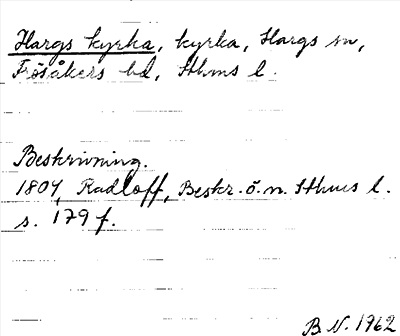 Hargs kyrka, kyrka, Hargs sn,
Frösåkers hd, Sthms l.
Beskrivning.
1804, Radloff, Beskr. ö. n. Sthms l.
s. 179 f.
B.N. 1962